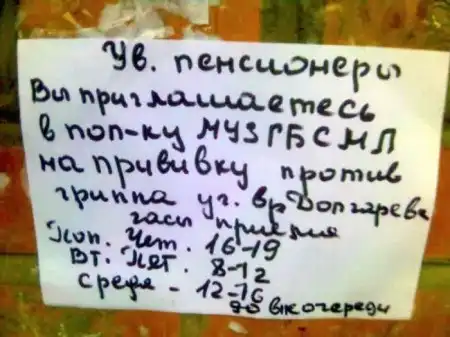 Ув. пенсионеры
Вы приглашаетесь
в поп-ку МУЗГБСМП
на прививку против
гриппа уг. вр Долгарева
часы приема
Пон. Чет. 16-19
Вт. Пят. 8-12
среда - 12-16
вк очереди